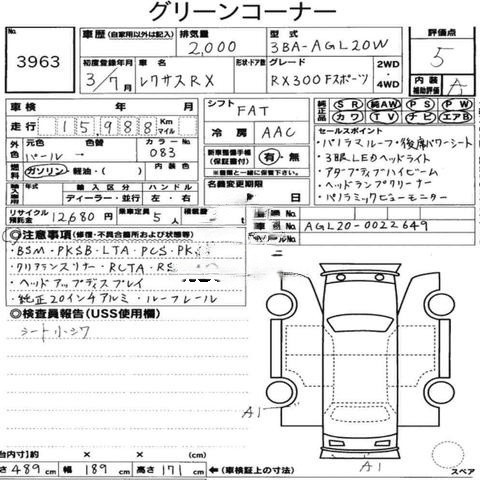 グリーンコーナー
No. 3963
車歴 (自家用以外は記入)
排気量 2,000
型式 3BA-AGL20W
評価点 5
初度登録年月 3/7月
車名 レクサスRX
形状・ドア数
グレード RX300 Fスポーツ
2WD ・ 4WD
内装補助評価 A
車検 年 月
シフト FAT
純正品 SR 純AW PS PW
カワ TV ナビ エアB
走行 15988 Km マイル
冷房 AAC
セールスポイント
・パノラマルーフ・後席パワーシート
・3眼LEDヘッドライト
・アダプティブハイビーム
・ヘッドランプクリーナー
・パノラミックビューモニター
外色 元色 パール 色替 → カラーNo. 083
燃料 ガソリン・軽油・( ) 内装色
新車整備手帳(保証書付) 有・無
※一緒に保管して下さい。
輸入年式 輸入区分 ディーラー・並行 ハンドル 左・右
名義変更期限 月 日
リサイクル預託金 12680 円 乗車定員 5 人 積載量
車 No. AGL20-0022649
◎注意事項(修復・不具合箇所および状態等)
・BSM・PKSB・LTA・PCS・PK
・クリアランスソナー・RCTA・RS
・ヘッドアップディスプレイ
・純正20インチアルミ・ルーフレール
◎検査員報告(USS使用欄)
シート小シワ
A1
A1
台内寸)約 × × (cm)
さ 489 cm 幅 189 cm 高さ 171 cm ←(車検証上の寸法)
スペア